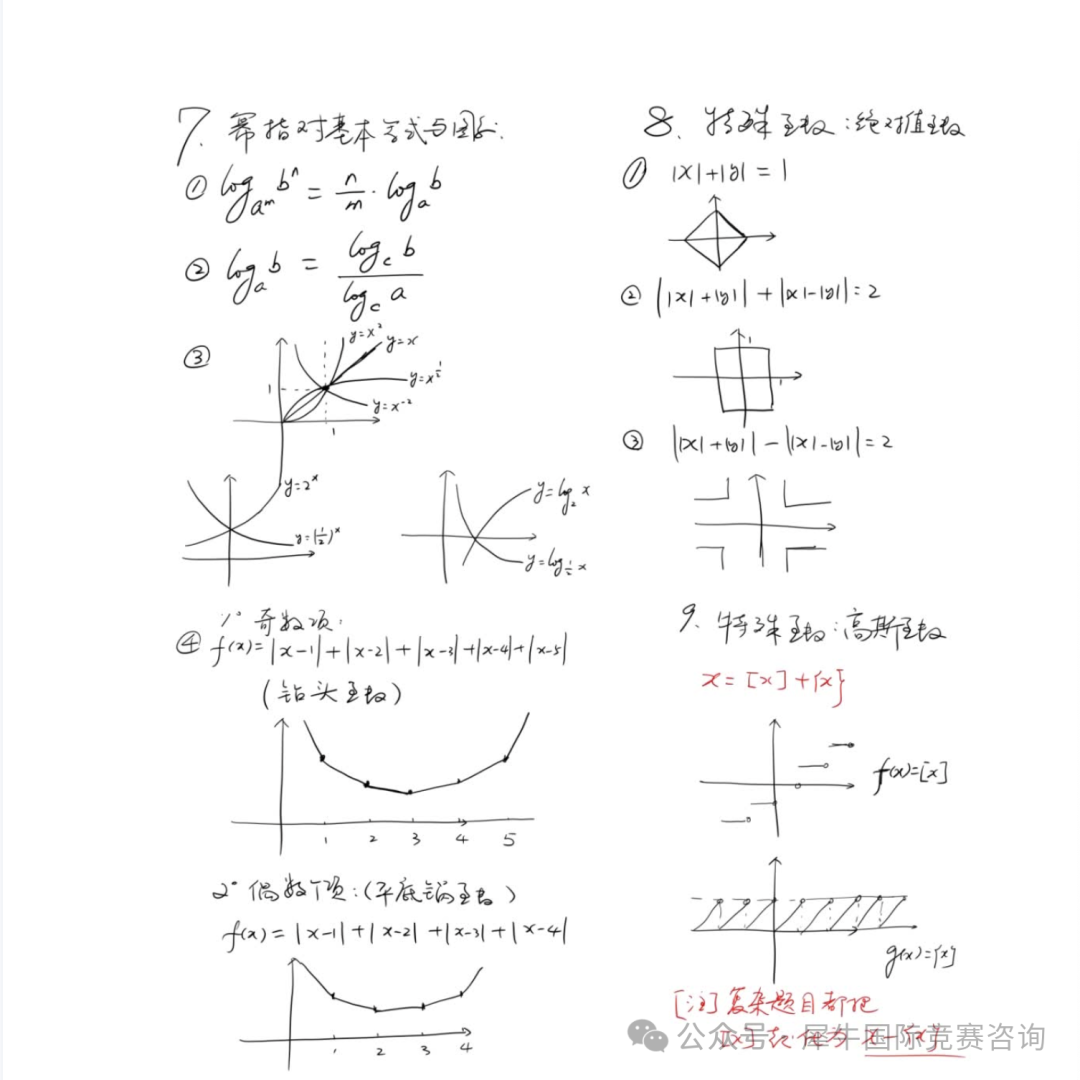 7. 幂指对基本公式与图形.
① log_{a^m} b^n = \frac{n}{m} · log_a b
② log_a b = \frac{log_c b}{log_c a}
③
y=x²
y=x
y=x^{\frac{1}{2}}
y=x^{-2}
1
1
y=2^x
y=(\frac{1}{2})^x
y=log_2 x
y=log_{\frac{1}{2}} x
1° 奇数项:
④ f(x)=|x-1|+|x-2|+|x-3|+|x-4|+|x-5|
(钻头函数)
1 2 3 4 5
2° 偶数项:(平底锅函数)
f(x)=|x-1|+|x-2|+|x-3|+|x-4|
1 2 3 4
8. 特殊函数:绝对值函数
① |x|+|y|=1
② ||x|+|y||+||x|-|y||=2
1
1
③ ||x|+|y||-||x|-|y||=2
9. 特殊函数:高斯函数
x=[x]+{x}
f(x)=[x]
g(x)={x}
[注]复杂题目都把
[x] x-{x}
公众号·犀牛国际竞赛咨询